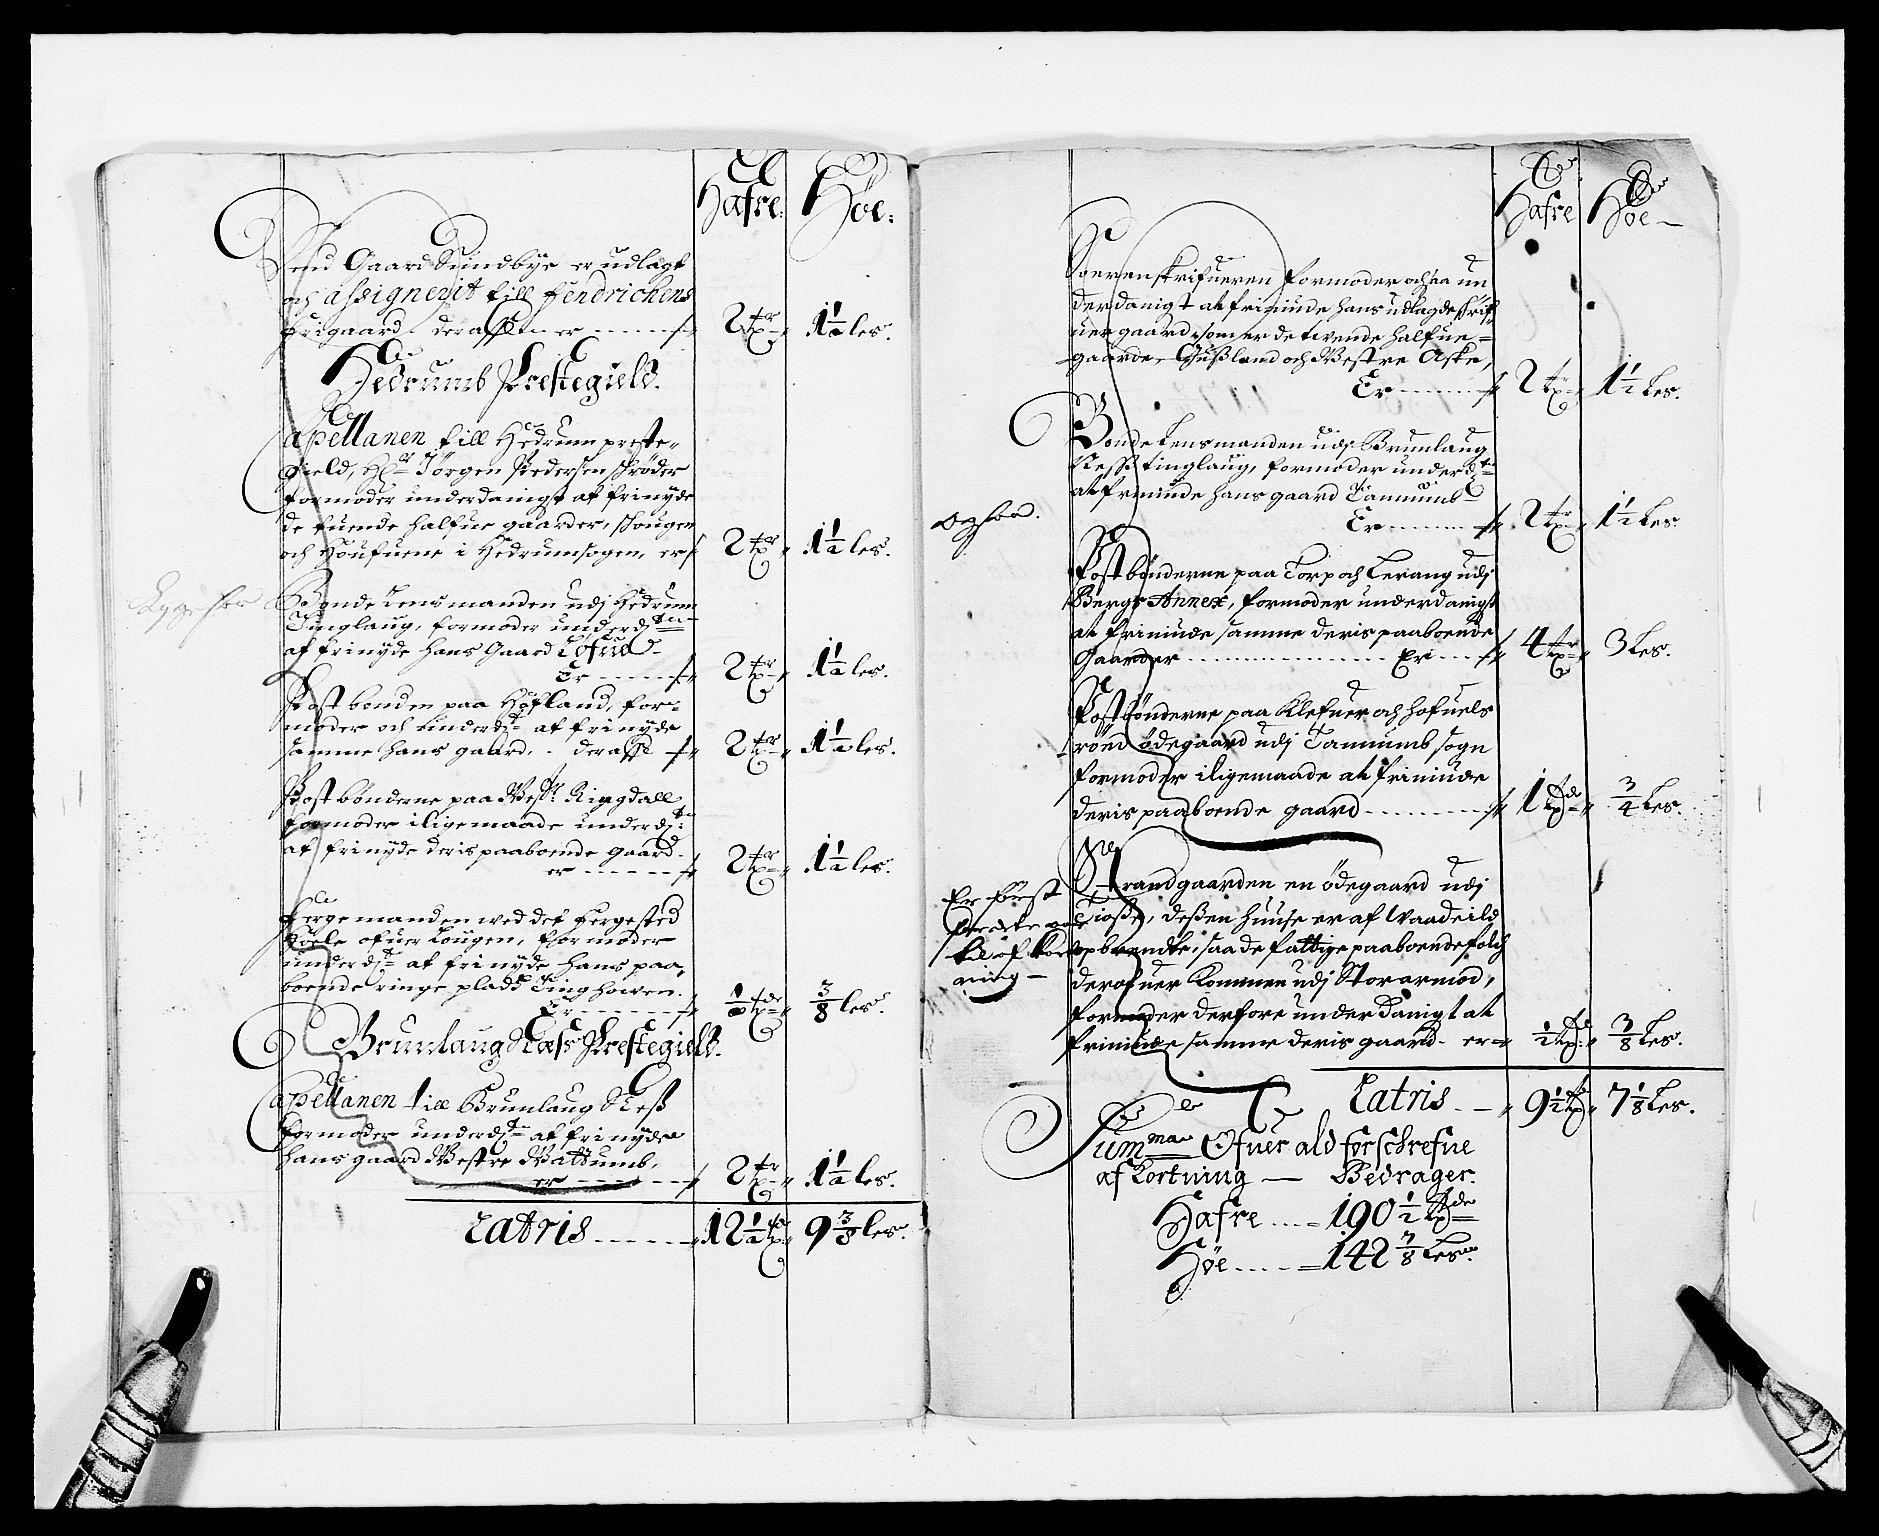 Hafre. Høe.
Gaard Sundbye er udlagt
och assignerit till fendrichens
frigaard. deraff er 2 tr 1½ les.
Hedrumb Prestegield.
Capellanen till Hedrum preste-
gield, Hr Jørgen Pedersen Schrøder
formoder underdanigt at frinyde
de tuende halfue gaarder, Schougen
och Houfuene i Hedrumsogen, er 2 tr 1½ les.
Bonde Lensmanden udj Hedrum
Tinglaug, formoder underd:
at frinyde hans Gaard
Er 2 tr 1½ les.
Postbonden paa Hofland, for-
moder och underd: at frinyde
samme hans gaard, deraff 2 tr 1½ les.
Postbønderne paa Vest: Ringdall
formoder iligemaade underd:
at frinyde deris paaboende gaard.
er 2 tr 1½ les.
Fergemanden wed det fergested
ofuer Lougen, formoder
underd: at frinyde hans paa-
boende ringe plads Tinghowen.
Er ½ tde 3/8 les.
Brunlaug Næss Prestegield.
Capellanen till Brunlaug Ness
formoder underd: at frinyde
hans gaard Westre Wattumb.
er 2 tr 1½ les.
Latris 12½ 9 3/8 les.
Hafre Høe
Sorenskrifueren formoder och saa un
derdanigt at friniude hans udlagde skrif-
uer gaard som er de tvende halfue-
gaarde, Gußland och Westre Aske,
Er 2 tr 1½ Les.
Bonde Lensmanden udj Brunlaug
Ness tinglaug, formoder underd:
at friniude hans gaard Tanumb
Er 2 tr 1½ Les.
Postbønderne paa Torp och Lerang udj
Bergs Annex, formoder underdanigst
at friniude samme deris paaboende
Gaarder Er 4 tr 3 Les.
Postbønderne paa Klefuer och hofuels
rønd ødegaard udj Tanumb sogn
formoder iligemaade at friniude
deris paaboende gaard 1 tde 3/4 Les.
Er først
Strandgaarden en ødegaard udj
deßen huuse er af Waade ild
opbrendte, saa de fattige paaboende folch
ning
derofuer Kommen udj Stor armod,
formoder derfore underdanigt at
friniude samme deris gaard. er ½ 3/8 Les.
Latris 9½ 7 1/8 Les.
Summa Ofuer ald forschrefne
afkortning — Bedrager.
Hafre 190½ tde
Høe 142 7/8 Les.